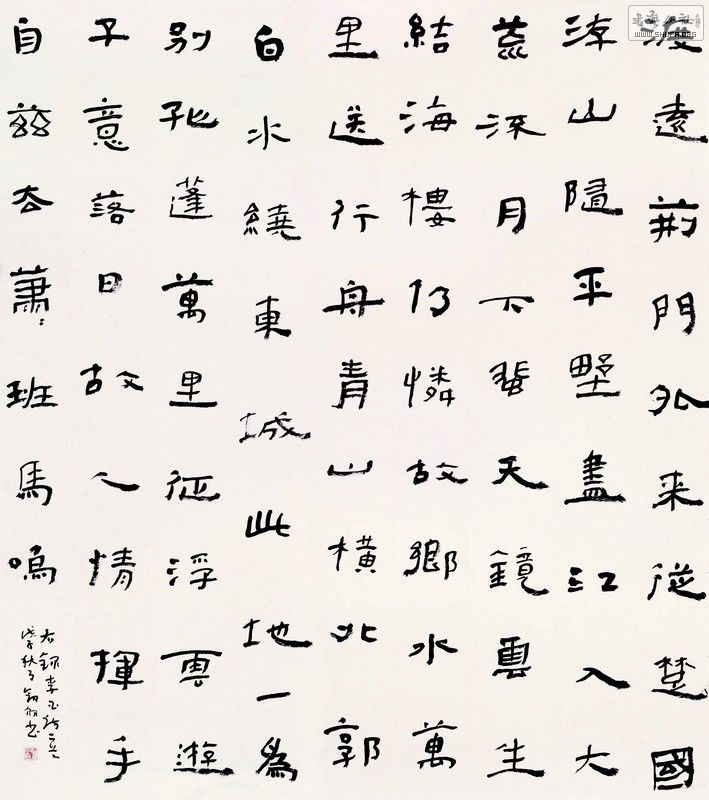 渡遠荊門外来從楚國
游山隨平野盡江入大
荒流月下飛天鏡雲生
結海樓仍憐故鄉水萬
里送行舟青山橫北郭
白水繞東城此地一為
別孤蓬萬里征浮雲遊
子意落日故人情揮手
自茲去蕭〻班馬鳴
右錄李白詩二首
戊子秋月書
WWW.SHUFA.ORG